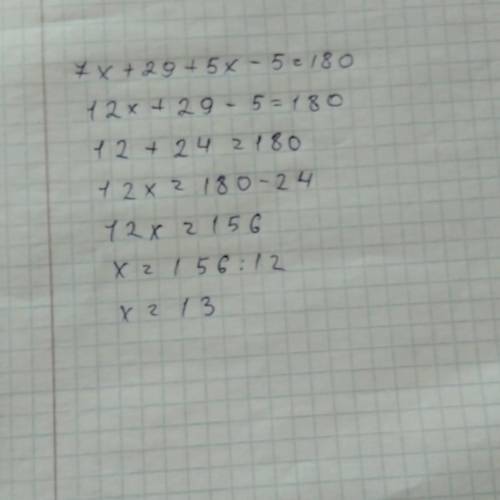 7x+29+5x-5=180
12x+29-5=180
12+24=180
12x=180-24
12x=156
x=156:12
x=13